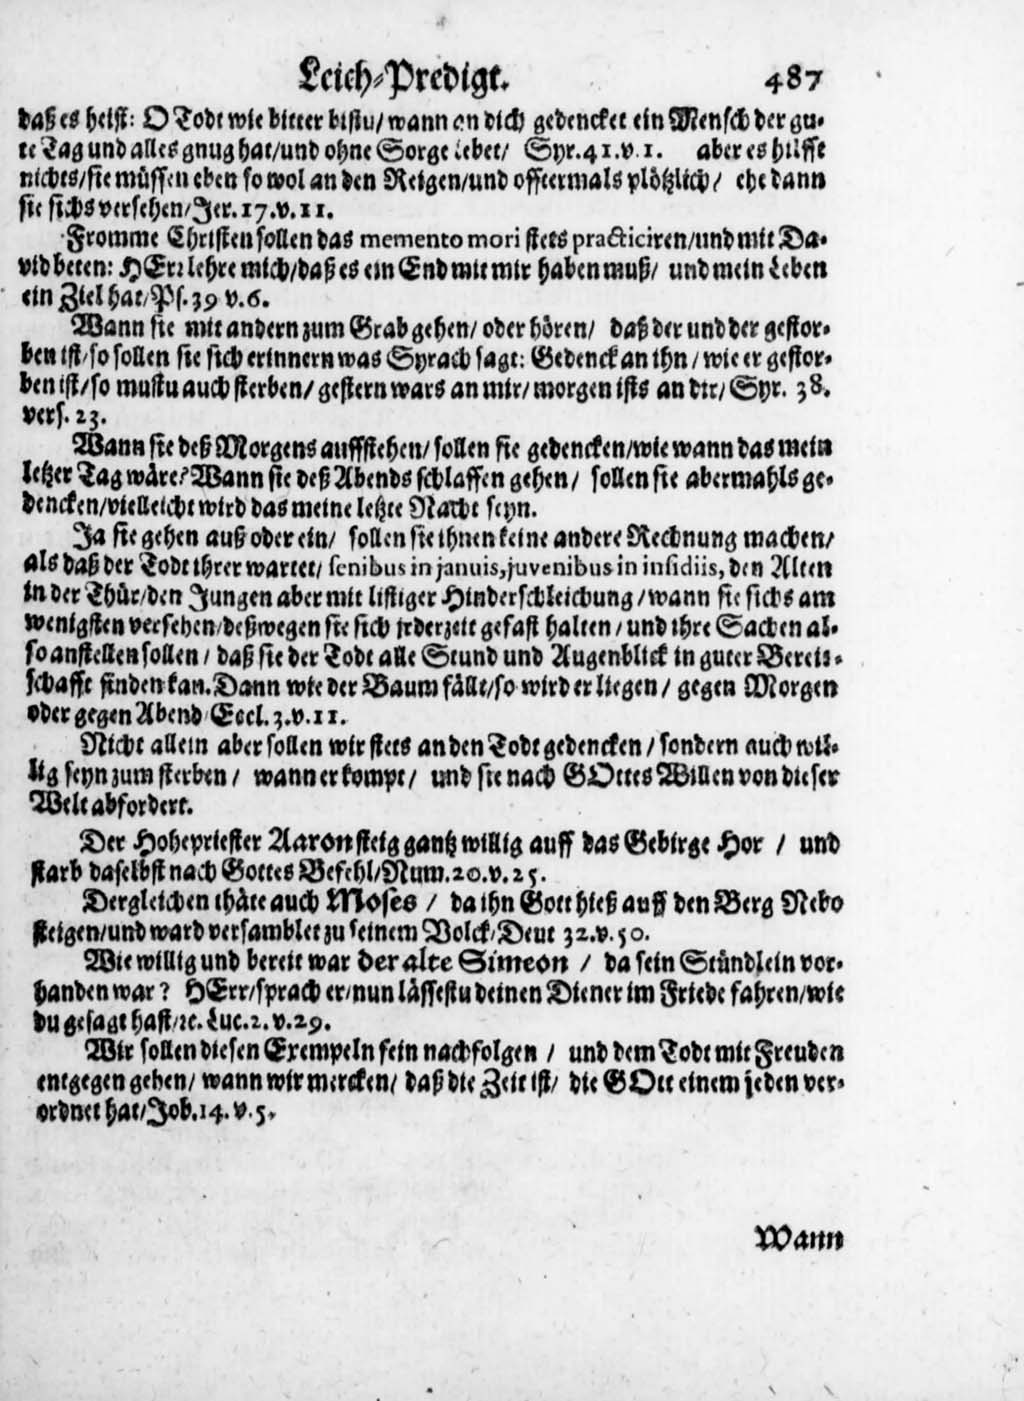 Leich-Predigt. 487
daß es heist: O Todt wie bitter bistu/ wann an dich gedencket ein Mensch der gu-
te Tag und alles gnug hat/und ohne Sorge lebet/ Syr.41.v.1. aber es hilfft
nichts/sie müssen eben so wol an den Reigen/und offtermals plötzlich/ ehe dann
sie sichs versehen/Jer.17.v.11.
Fromme Christen sollen das memento mori stets practiciren/und mit Da-
vid beten: HErr lehre mich/daß es ein End mit mir haben muß/ und mein Leben
ein Ziel hat/Ps.39 v.6.
Wann sie mit andern zum Grab gehen/ oder hören/ daß der und der gestor-
ben ist/so sollen sie sich erinnern was Syrach sagt: Gedenck an ihn/wie er gestor-
ben ist/so mustu auch sterben/ gestern wars an mir/morgen ists an dir/Syr. 38.
vers. 23.
Wann sie deß Morgens auffstehen/ sollen sie gedencken/wie wann das mein
letzer Tag wäre? Wann sie deß Abends schlaffen gehen/ sollen sie abermahls ge-
dencken/vielleicht wird das meine letzte Nacht seyn.
Ja sie gehen auß oder ein/ sollen sie ihnen keine andere Rechnung machen/
als daß der Todt ihrer wartet/ senibus in januis, juvenibus in insidiis, den Alten
in der Thür/den Jungen aber mit listiger Hinderschleichung/wann sie sichs am
wenigsten versehen/deßwegen sie sich jederzeit gefast halten/und ihre Sachen al-
so anstellen sollen/ daß sie der Todt alle Stund und Augenblick in guter Bereit-
schafft finden kan. Dann wie der Baum fällt/so wird er liegen/ gegen Morgen
oder gegen Abend/Eccl.3.v.11.
Nicht allein aber sollen wir stets an den Todt gedencken/sondern auch wil-
lig seyn zum sterben/ wann er kompt/ und sie nach GOttes Willen von dieser
Welt abfordert.
Der Hohepriester Aaron steig gantz willig auff das Gebirge Hor / und
starb daselbst nach Gottes Befehl/Num.20.v.25.
Dergleichen thäte auch Moses / da ihn Gott hieß auff den Berg Nebo
steigen/und ward versamblet zu seinem Volck/Deut 32.v.50.
Wie willig und bereit war der alte Simeon / da sein Stündlein vor-
handen war? HErr/sprach er/nun lässestu deinen Diener im Friede fahren/wie
du gesagt hast/ꝛc. Luc.2.v.29.
Wir sollen diesen Exempeln fein nachfolgen / und dem Todt mit Freuden
entgegen gehen/ wann wir mercken/ daß die Zeit ist/ die GOtt einem jeden ver-
ordnet hat/Job.14.v.5.
Wann